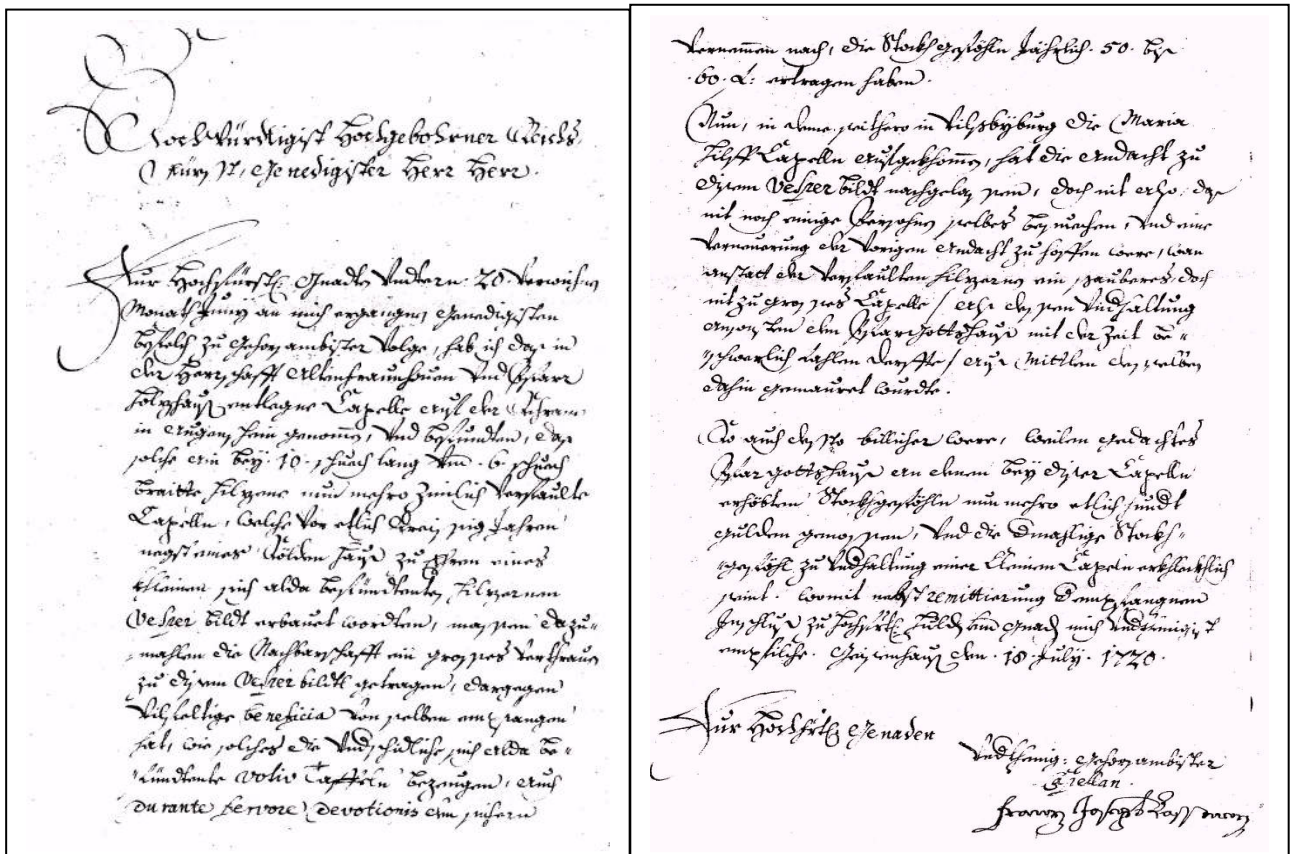 Hochwürdigist Hochgebohrner Reichs
Fürst, Genedigister Herr Herr.
Eur Hochfürstl: Gnaden Vndtern 20. verwichnen
Monath Juny an mich ergangnen Genedigisten
Befelch zu gehorsambister Volge, hab ich das in
der Herrschafft Altenfraunhouen Vnd Pfarr
Holzhausen entlegne Capelle auf der
in Augenschein genomen, Vnd befundten, das
solche ein bey 10. schuech lang Vnd 6 schuech
braitte hilzene nun mehro zimlich verfaulte
Capelln, welche vor etlich dreissig Jahren
negst eines Sölden Haus zu Ehren eines
kleinen sich alda befündtenten hilzernen
Vesper bildt erbauet wordten, massen dazu-
mahlen die Nachbarschafft ein grosses Verthrauen
zu disem Vesper bildtl getragen, dargegen
Vilfeltige beneficia von selben empfangen
hat, wie solches die Vndschidliche sich alda be-
fündtente Votiv Taffeln bezeugen, auch
durante fervore devotionis dem sichern
Vernemmen nach, die Stockhgeföhln Jährlich 50. bis
60. f: ertragen haben.
Nun, in deme seithero in Vilsbyburg die Maria
Hilff Capelln aufgekhomen, hat die Andacht zu
disem Vesper bildt nachgelassen, doch nit also, das
nit noch einige Persohnen selbes besuechen, Vnd eine
Verneuerung der Vorigen Andacht zu hoffen were, wan
anstatt der Verfaulten hilzernen ein sauberes doch
nit zu grosses Capelle / als dessen Vndhaltung
ansonsten dem Pfargottshaus mit der Zeit be-
schwerlich fahlen derffte / aus Mittlen desselben
dahin gemauret wurdte.
So auch desto billicher were, weilen gedachtes
Pfargottshaus an denen bey diser Capelln
erhöbten Stockhgeföhln nun mehro etlich hundt
gulden genossen, Vnd die dmahlige Stockh-
geföhl zu Vndhaltung einer kleinen Capeln erkhleckhlich
seint. Womit nebst remittierung des empfangnen
Inschlus zu hochfürstl: Huld vnd Gnad mich Vndthenigist
empfilche. Geisenhaus den 18 July 1720.
Eur Hochfrtl: Genaden
Vndthenig: gehorsambister
Caplan
Franz Joseph